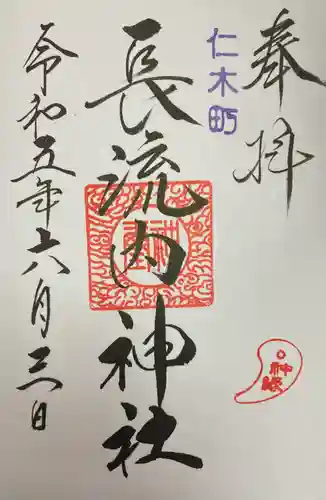 奉拝
仁木町
長流内神社
令和五年六月三日
神縁